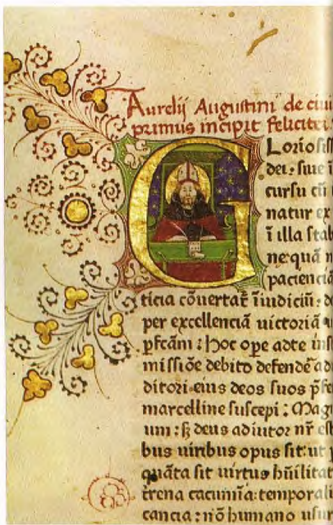 Aurelij Augustini de ciui
primus incipit feliciter
Glorioſiſſ
dei: ſiue i
curſu cū
natur ex
ī illa ſtab
nc quā
pacienciā
ticia cōuertat̄ ī iudiciū: d
per excellenciā uictoriā
pfcām: hoc ope adte inſt
miſſiōe debito defendē ad
ditori eius deos ſuos p̄fe
marcelline ſuſcepi: Mag
um: ſꝫ deus adiutor nr̄ eſt
bus uiribus opus ſit: ut p
quāta ſit uirtus hūilitat
trena cacumīa: temporali
cancia: nō humano uſur